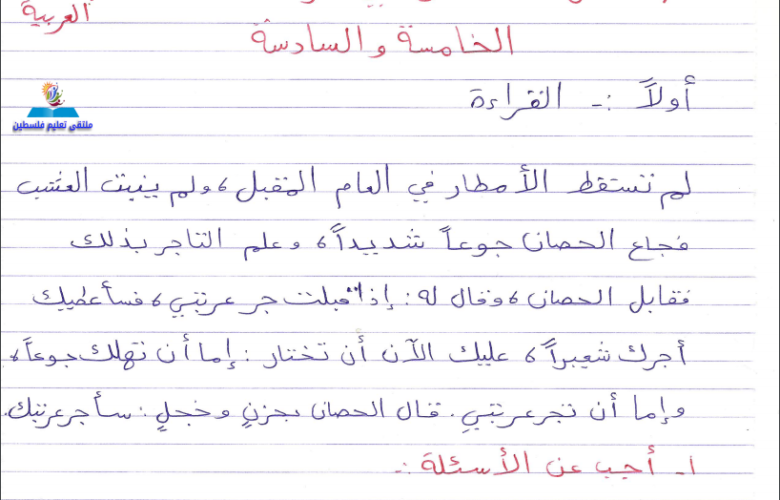 العربية
الخامسة والسادسة
أولاً :- القراءة
ملتقى تعليم فلسطين
لم تسقط الأمطار في العام المقبل، ولم ينبت العشب
فجاع الحصان جوعاً شديداً، وعلم التاجر بذلك
فقابل الحصان، وقال له: إذا قبلت جر عربتي، فسأعطيك
أجرك شعيراً، عليك الآن أن تختار: إما أن تهلك جوعاً،
وإما أن تجر عربتي. قال الحصان بحزنٍ وخجلٍ: سأجر عربتك.
أ- أجب عن الأسئلة :-